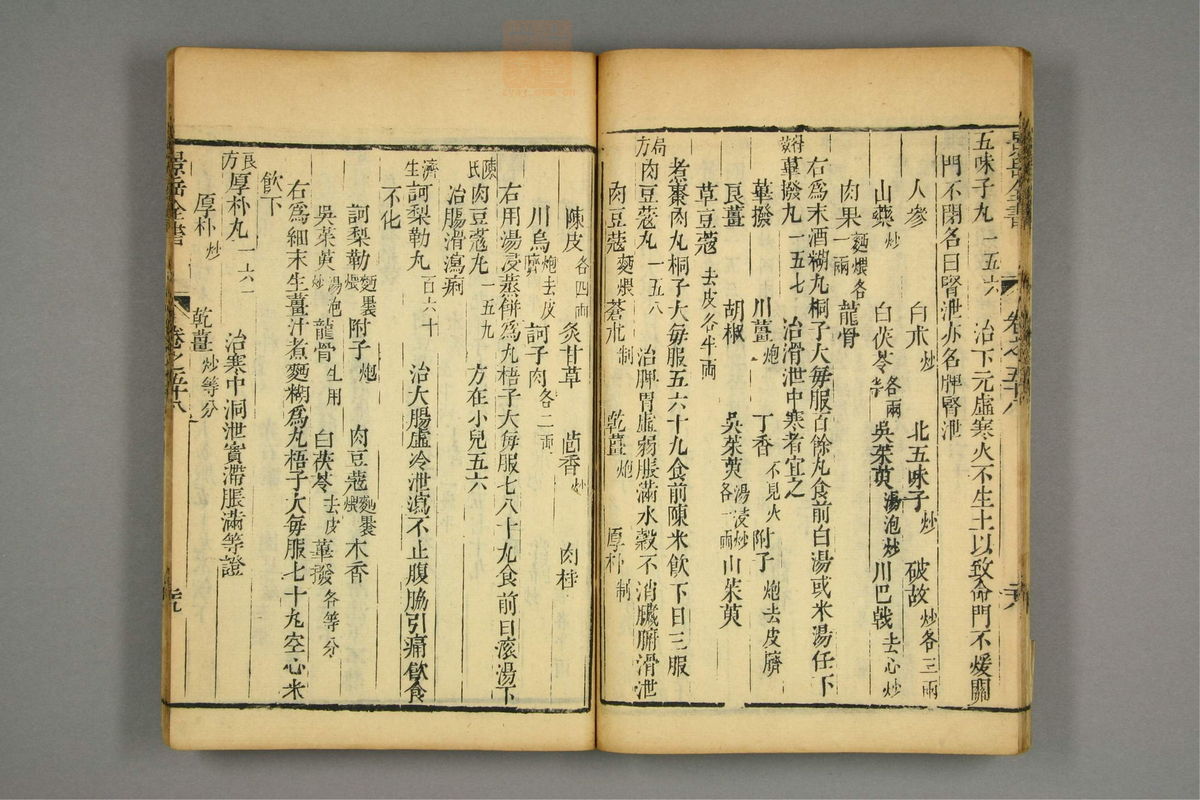 五味子丸 一五六 治下元虛寒火不生土以致命門不煖關
門不閉名曰腎泄亦名脾腎泄
人參 白朮炒 北五味子炒 破故炒各三兩
山藥炒 白茯苓各兩半 吳茱萸湯泡炒 川巴戟去心炒
肉果麵煨各一兩 龍骨
右爲末酒糊丸桐子大每服百餘丸食前白湯或米湯任下
蓽撥丸 一五七 治滑泄中寒者宜之
蓽撥 川薑炮 丁香不見火 附子炮去皮臍
良薑 胡椒 吳茱萸湯浸炒各一兩 山茱萸
草豆蔻去皮各半兩
煮棗肉丸桐子大每服五六十丸食前陳米飲下日三服
局方肉豆蔻丸 一五八 治脾胃虛弱脹滿水穀不消臟腑滑泄
肉豆蔻麵煨 蒼朮制 乾薑炮 厚朴制
陳皮各四兩 炙甘草 茴香炒 肉桂
川烏炮去皮臍 訶子肉各二兩
右用湯浸蒸餅爲丸梧子大每服七八十丸食前日滚湯下
陳氏肉豆蔻丸 一五九 方在小兒五六
治腸滑瀉痢
濟生訶梨勒丸 百六十 治大腸虛冷泄瀉不止腹脇引痛飲食
不化
訶梨勒麵裹煨 附子炮 肉豆蔻麵裹煨 木香
吳茱萸湯泡炒 龍骨生用 白茯苓去皮 蓽撥各等分
右爲細末生薑汁煮麵糊爲丸梧子大每服七十丸空心米
飲下
良方厚朴丸 一六一 治寒中洞泄實滯脹滿等證
厚朴炒 乾薑炒等分
景岳全書 卷之五十八